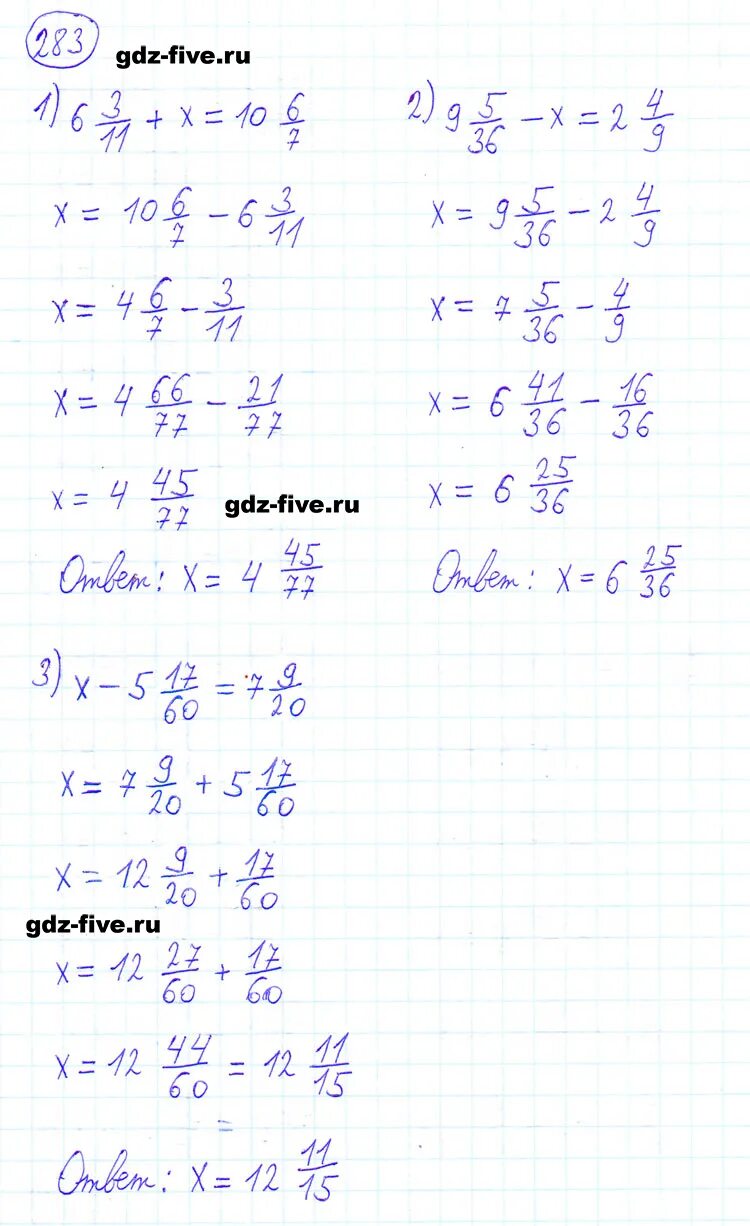 283
gdz-five.ru
1) 6 3/11 + x = 10 6/7
x = 10 6/7 - 6 3/11
x = 4 6/7 - 3/11
x = 4 66/77 - 21/77
x = 4 45/77
gdz-five.ru
Ответ: x = 4 45/77
2) 9 5/36 - x = 2 4/9
x = 9 5/36 - 2 4/9
x = 7 5/36 - 4/9
x = 6 41/36 - 16/36
x = 6 25/36
Ответ: x = 6 25/36
3) x - 5 17/60 = 7 9/20
x = 7 9/20 + 5 17/60
x = 12 9/20 + 17/60
gdz-five.ru
x = 12 27/60 + 17/60
x = 12 44/60 = 12 11/15
Ответ: x = 12 11/15